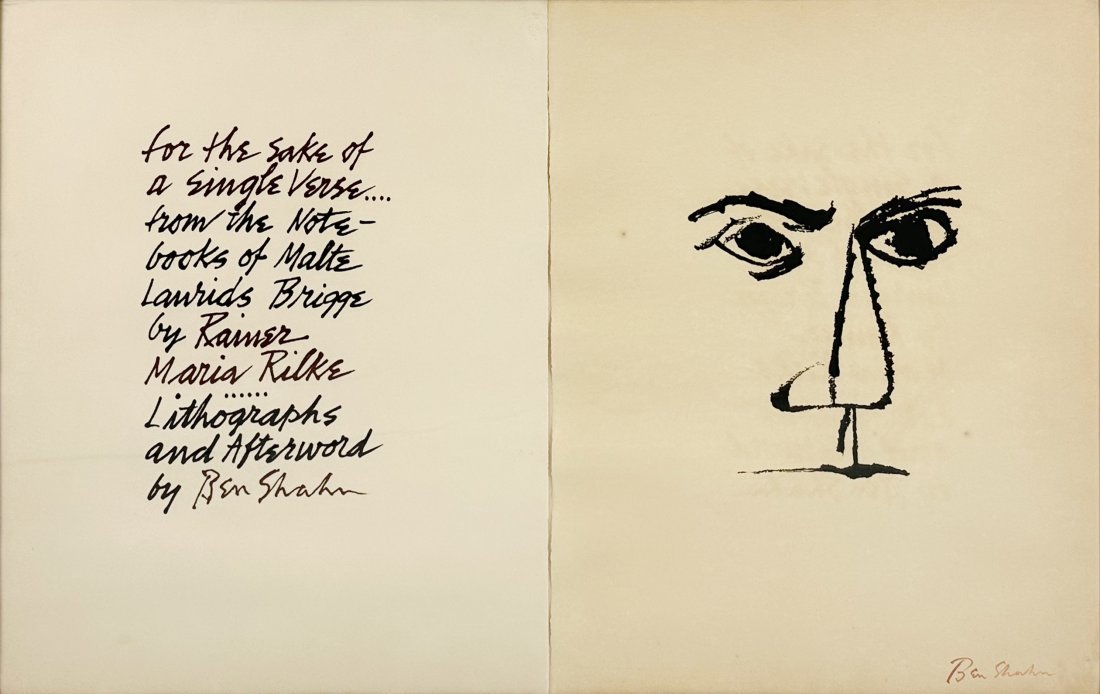 for the sake of
a single Verse....
from the Note-
books of Malte
Laurids Brigge
by Rainer
Maria Rilke
......
Lithographs
and Afterword
by Ben Shahn
Ben Shahn